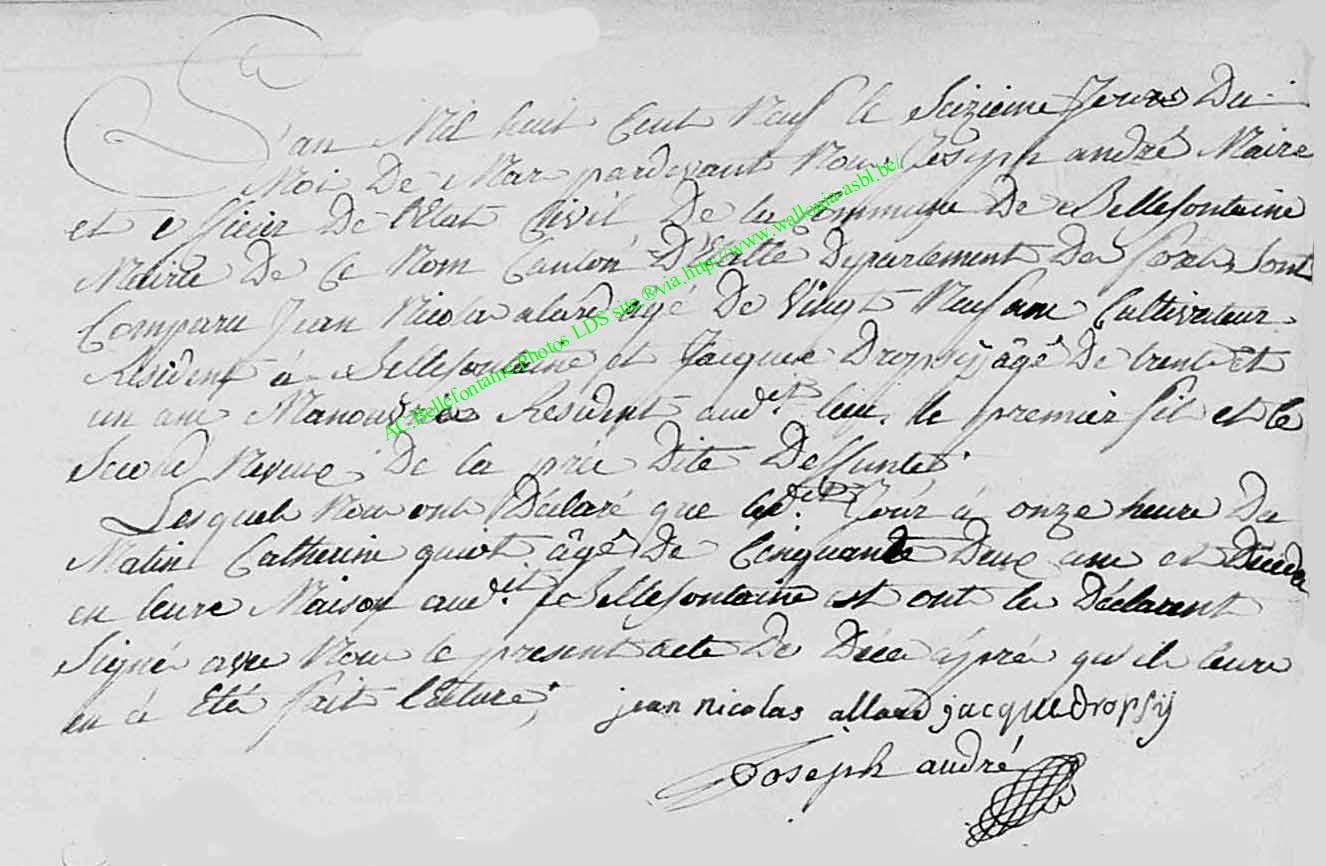 L'an Mil huit Cent Neuf le Seizieme Jours Du
Moi De Mar pardevant Nous Joseph andré Maire
et officier De l'Etat Civil De la Commune De Bellefontaine
Mairie De Ce Nom Canton D'Etalle Departement Des forets, Sont
Comparu Jean Nicola alard agé De Vingt Neuf ans Cultivateur
Résident à Bellefontaine et Jacque Dropsy âgé De trente et
un ans Manouvrié Resident aud.it lieu. le premier fil et le
Second Neveux De la prée Dite Deffunte;
Lesquels Nous ont Déclaré que led.it Jour à onze heure Du
Matin Catherine quiot âgé De Cinquante Deux ans est Décédé
en leure Maison aud.it Bellefontaine et ont les Déclarent
Signé avec Nous le present acte De Décé áprés qu'il leure
en à Eté fait lecture;
jean nicolas allard jacque dropsy
Joseph andré
AC Bellefontaine Photos LDS site ® via http://www.wallonia-asbl.be/